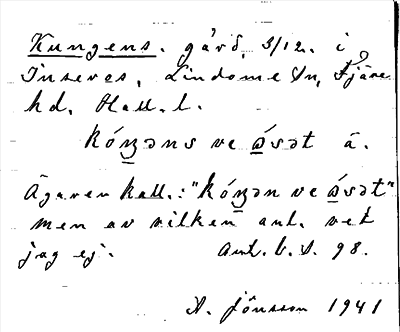 Kungens. gård, 3/12. i
Inseros, Lindome sn, Fjäre
hd, Hall. l.
kóŋəns ve ǿsət ä.
Ägaren kall.: "kóŋən ve ǿsət"
men av vilken anl. vet
jag ej. Ant. b. s. 98.
A. Jönsson 1941